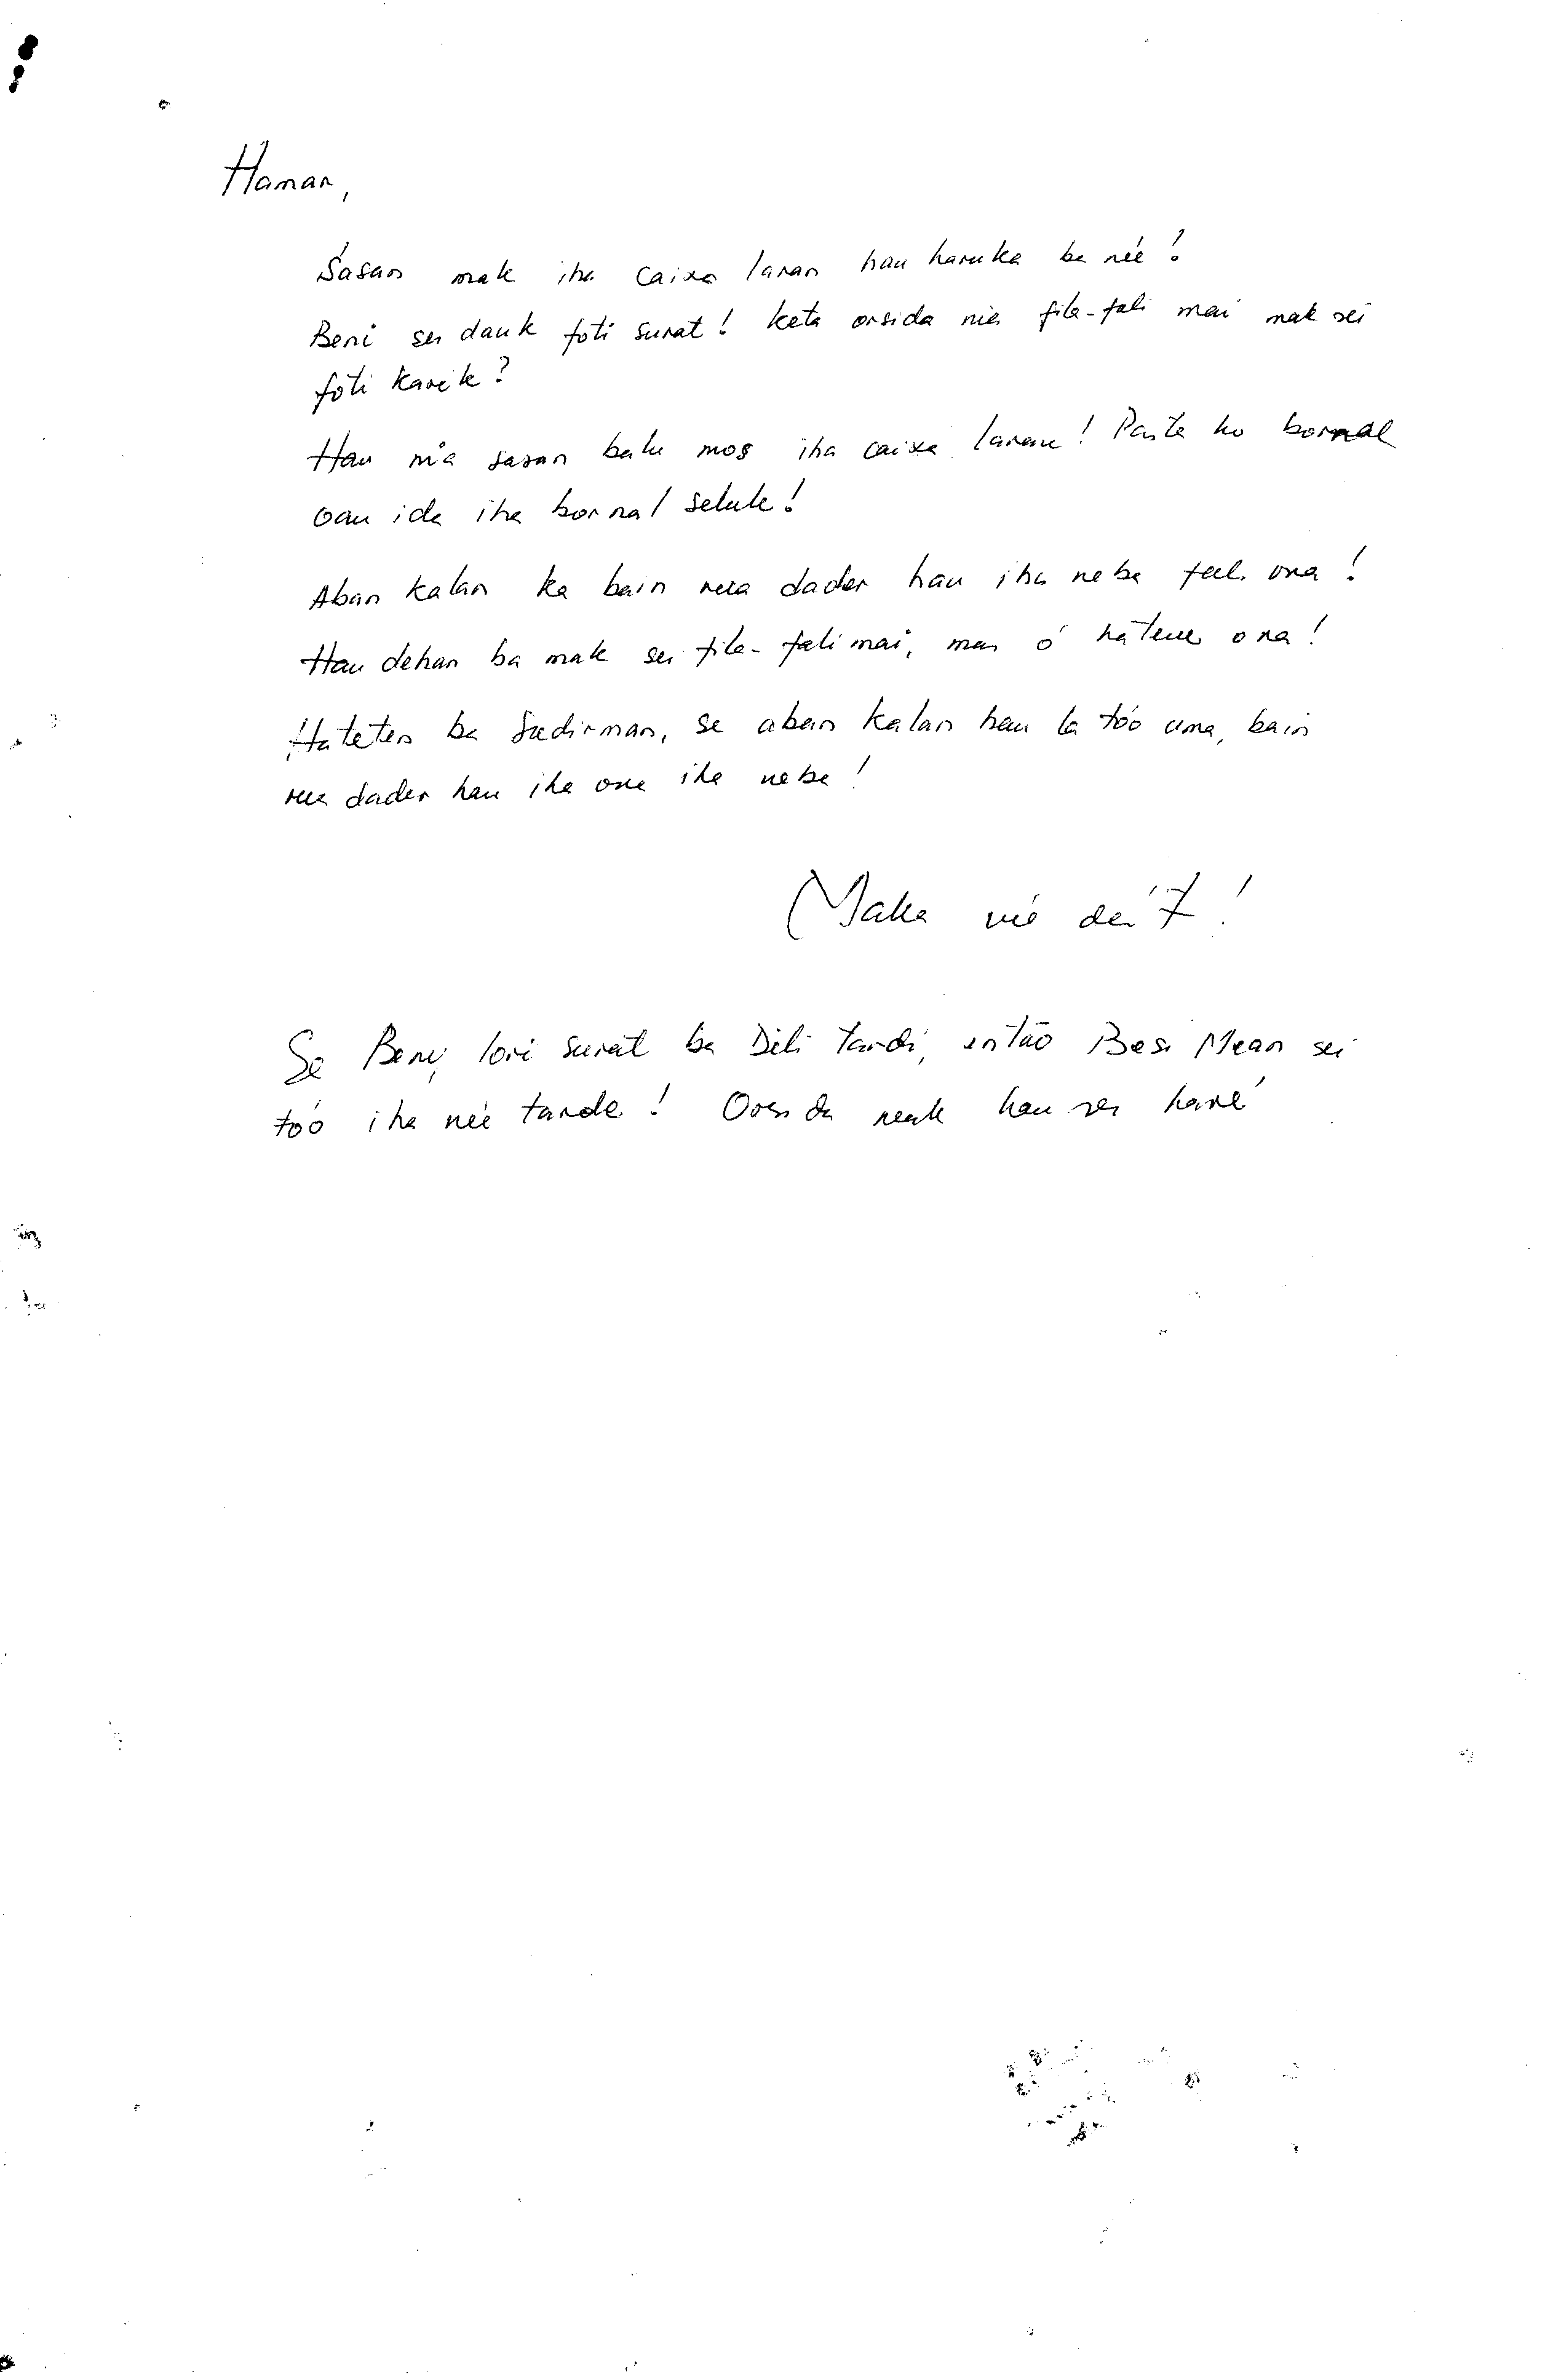 Haman,
Sasan mak iha caixa laran hau haruka ba néé!
Beni sei dauk foti surat! Keta orsida nia fila-fali mai mak sei
foti karik?
Hau nia sasan balu mos iha caixa laran! Pasta ho bornal
oan ida iha bornal seluk!
Aban kalan ka bain rua dader hau iha neba fali ona!
Hau dehan ba mak sei fila-fali mai, mas ó hatene ona!
Hateten ba Sudirman, se aban kalan hau la tóo uma, bain
rua dader hau iha ona iha neba!
Maka néé dei
Se Beny lori surat ba Dili tardi, então Besi Mean sei
tóo iha néé tarde! Orsida mak hau sei haré